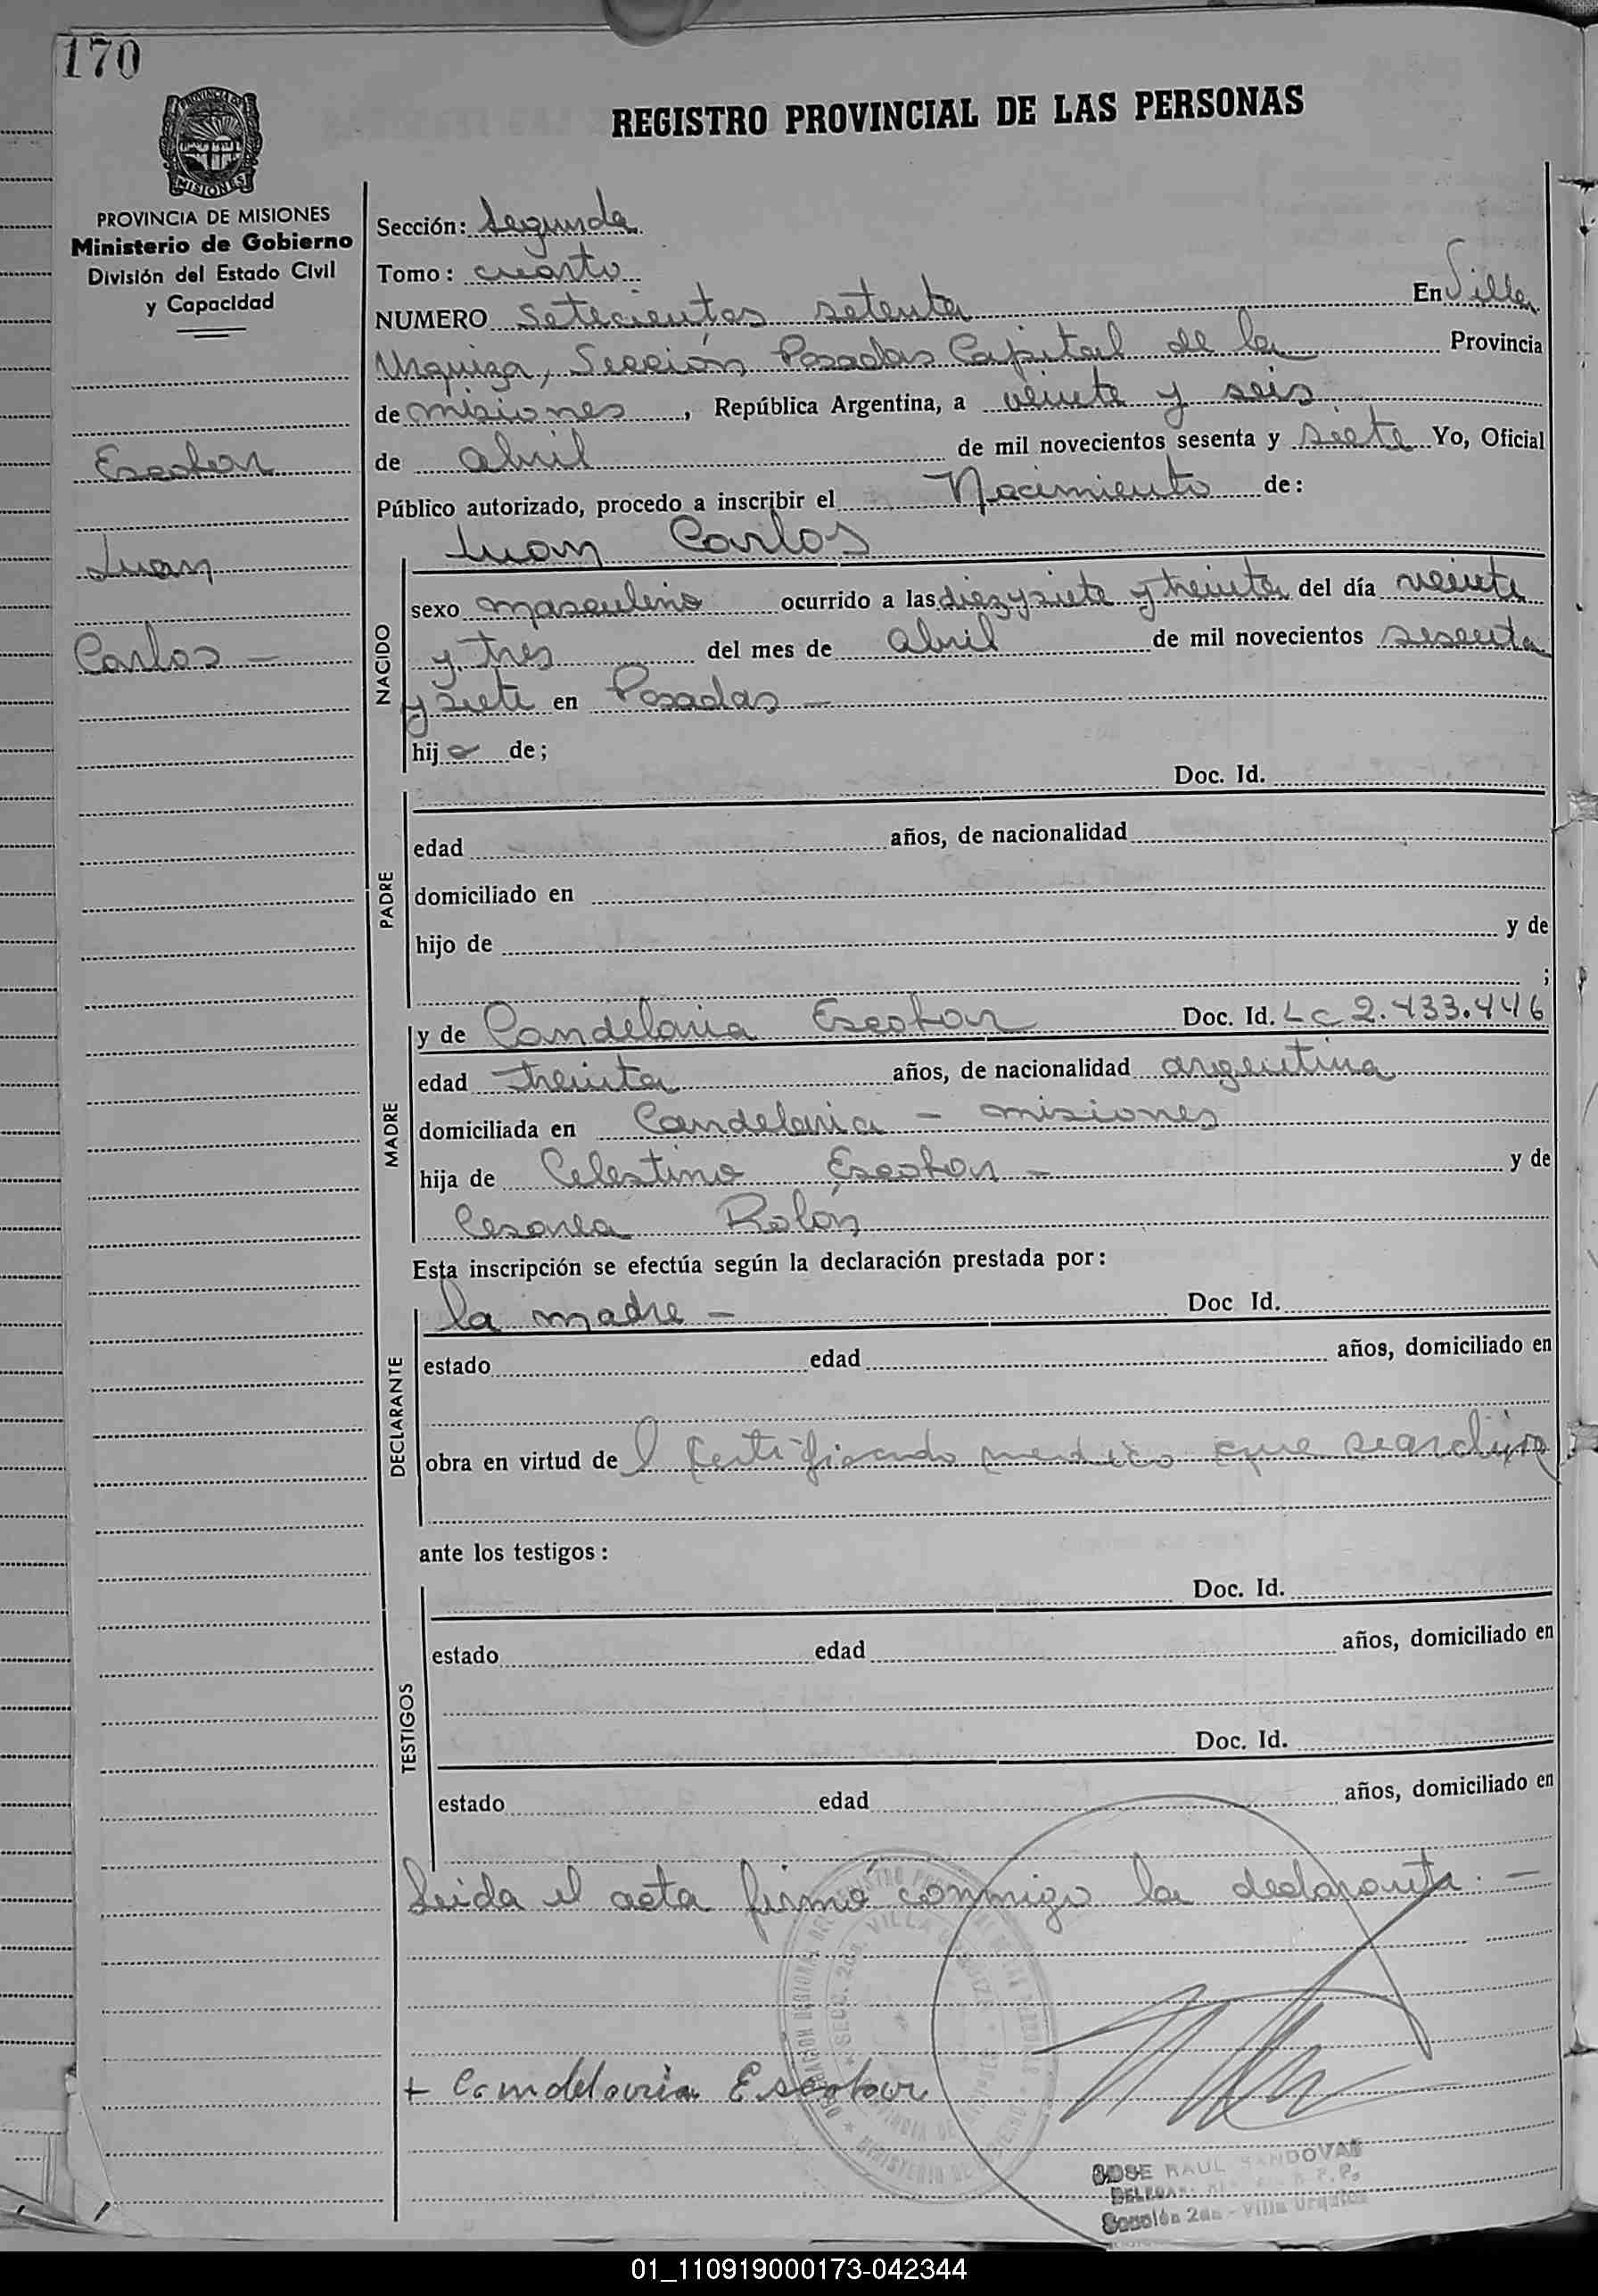 170
REGISTRO PROVINCIAL DE LAS PERSONAS
PROVINCIA DE MISIONES
Ministerio de Gobierno
División del Estado Civil
y Capacidad
Escobar
Juan
Carlos -
Sección: Segunda
Tomo: cuarto
NUMERO Setecientos setenta En Villa
Urquiza, Sección Posadas Capital de la Provincia
de misiones, República Argentina, a veinte y seis
de abril de mil novecientos sesenta y siete Yo, Oficial
Público autorizado, procedo a inscribir el Nacimiento de:
Juan Carlos
NACIDO
sexo masculino ocurrido a las diez y siete y treinta del día veinte
y tres del mes de abril de mil novecientos sesenta
y siete en Posadas -
hijo de;
PADRE
Doc. Id.
edad años, de nacionalidad
domiciliado en
hijo de y de
;
MADRE
y de Candelaria Escobar Doc. Id. LC 2.433.446
edad treinta años, de nacionalidad argentina
domiciliada en Candelaria - misiones
hija de Celestino Escobar - y de
Cesarea Rolón
Esta inscripción se efectúa según la declaración prestada por:
DECLARANTE
la madre - Doc Id.
estado edad años, domiciliado en
obra en virtud de l certificado medico que se archiva
ante los testigos:
TESTIGOS
Doc. Id.
estado edad años, domiciliado en
Doc. Id.
estado edad años, domiciliado en
Leida el acta firmó conmigo la declarante. -
+ Candelaria Escobar
SECC. 2da. VILLA URQUIZA
JOSE RAUL SANDOVAL
Sección 2da - Villa Urquiza
01_110919000173-042344